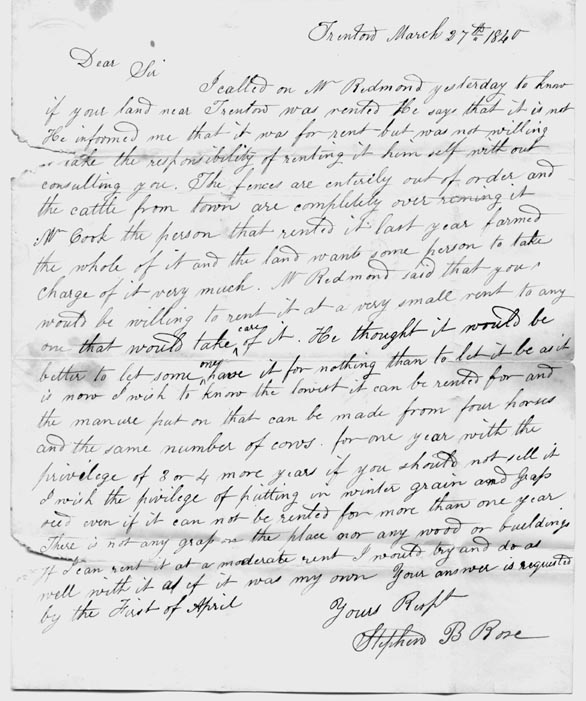 Trenton March 27th 1840
Dear Sir
I called on Mr Redmond yesterday to know
if your land near Trenton was rented He says that it is not
He informed me that it was for rent but was not willing
to take the responsibility of renting it him self with out
consulting you. The fences are enterily out of order and
the cattle from town are completely over runing it
Mr Cook the person that rented it last year farmed
the whole of it and the land wants some person to take
charge of it very much. Mr Redmond said that you
would be willing to rent it at a very small rent to any
one that would take care of it. He thought it would be
better to let some one have it for nothing than to let it be as it
is now I wish to know the lowest it can be rented for and
the manure put on that can be made from four horses
and the same number of cows. for one year with the
privilege of 3 or 4 more years if you should not sell it
I wish the privilege of putting in winter grain and Grass
seed even if it can not be rented for more than one year
There is not any grass on the place nor any wood or buildings
If I can rent it at a moderate rent I would try and do as
well with it as if it was my own Your answer is requested
by the First of April
Yours Respt
Stephen B Rose